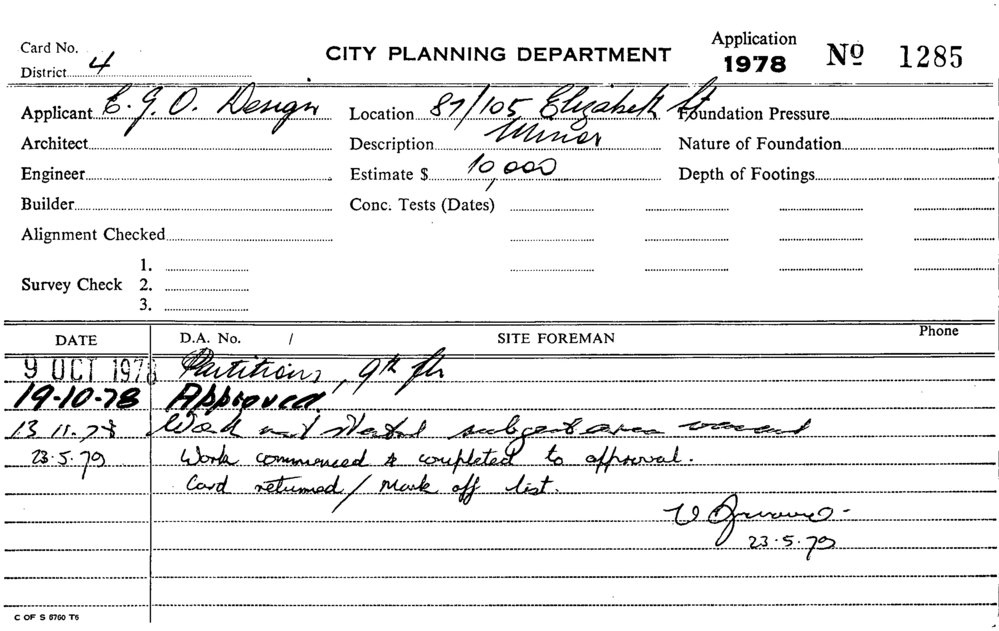 Card No.
CITY PLANNING DEPARTMENT
Application
1978 No 1285
District 4
Applicant E.G.O. Design Location 87/105 Elizabeth St Foundation Pressure
Architect Description Minor Nature of Foundation
Engineer Estimate $ 10,000 Depth of Footings
Builder Conc. Tests (Dates)
Alignment Checked
1.
Survey Check 2.
3.
DATE D.A. No. / SITE FOREMAN Phone
9 OCT 1978 Partitions, 9th flr
19-10-78 Approved.
13 11. 78 Work not started subject area vacant
23.5.79 Work commenced & completed to approval.
Card returned / Mark off list.
23.5.79
C OF S 8760 T6